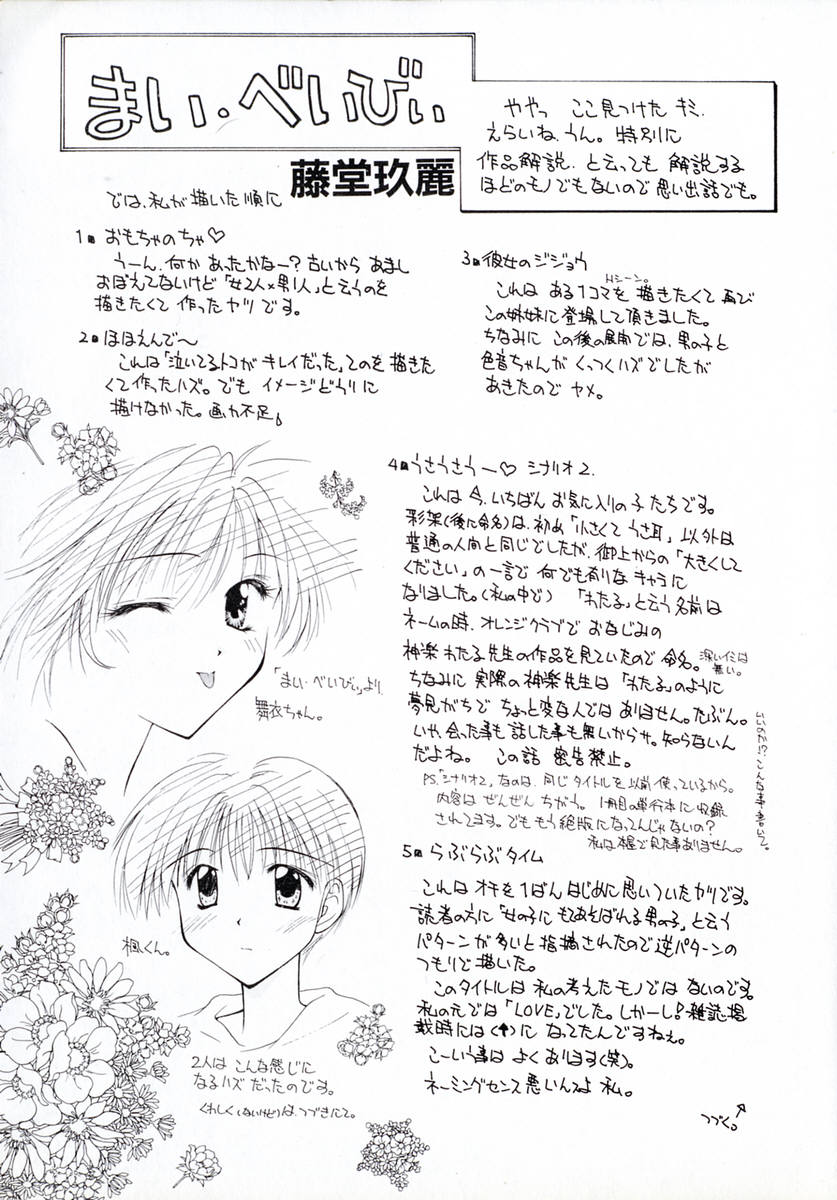 まい・べいびぃ
藤堂玖麗
ややっ ここ見つけた キミ.
えらいね、うん。特別に
作品解説. と云っても 解説する
ほどのモノでもないので 思い出話でも。
では、私が描いた順に
1 おもちゃのちゃ♡
うーん、何か あったかなー? 古いから あまし
おぼえてないけど「女2人×男1人」と云うのを
描きたくて 作ったヤツ です。
2 ほほえんで〜
これは「泣いてるトコが キレイだった」てのを 描きた
くて 作ったハズ。でも イメージどうりに
描けなかった。画力不足
3 彼女のジジョウ
Hシーン。
これは ある1コマを 描きたくて 再び
この姉妹に 登場して頂きました。
ちなみに この後の展開では、男の子と
色音ちゃんが くっつくハズでしたが
あきたので ヤメ。
4 うさうさうー♡ シナリオ2.
これは 今、いちばん お気に入りの子たちです。
彩架(後に命名)は、初め「小さくて うさ耳」以外は
普通の人間と同じでしたが、御上からの「大きくして
ください」の一言で 何でも有りな キャラに
なりました。(私の中で) 「わたる」と云う名前は
ネームの時、オレンジクラブで おなじみの
神楽 わたる先生の作品を見ていたので 命名。深いイミは無い。
ちなみに 実際の神楽先生は「わたる」のように
夢見がちで ちょっと変な人では ありません。たぶん。
いや、会った事も 話した事も無いからサ。知らないん
だよね。 この話 密告禁止。
いいのか!? こんな事書いて。
PS.「シナリオ2」なのは、同じタイトルを以前使っているから。
内容は ぜんぜん ちがう。1冊目の単行本に収録
されてます。でももう絶版になってんじゃないの?
私は本屋で見た事ありません。
5 らぶらぶタイム
これは オチを1ばん はじめに思いついたヤツです。
読者の方に「女の子に もてあそばれる男の子」と云う
パターンが多いと指摘されたので 逆パターンの
つもりで描いた。
このタイトルは 私の考えた モノでは ないのです。
私の元では「LOVE」でした。しかーし!雑誌掲
載時には(↑)に なってたんですねぇ。
こーいう事は よく あります(笑)。
ネーミングセンス 悪いんだよ 私。
つづく。
「まい・べいびぃ」より、
舞衣ちゃん。
楓くん。
2人は こんな感じに
なるハズ だったのです。
くわしく(ないけど)は、つづきにて。